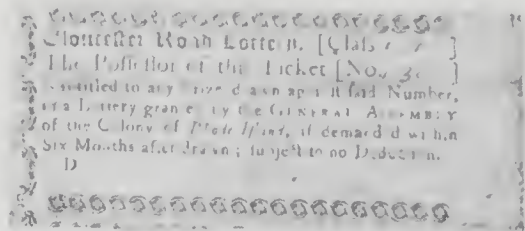 Gloucester Road Lottery, [Class
The Possessor of this Ticket [No. 3
entitled to any Prize drawn against said Number,
in a Lottery granted by the GENERAL ASSEMBLY
of the Colony of Rhode Island, if demanded within
Six Months after drawn; subject to no Deduction.
D